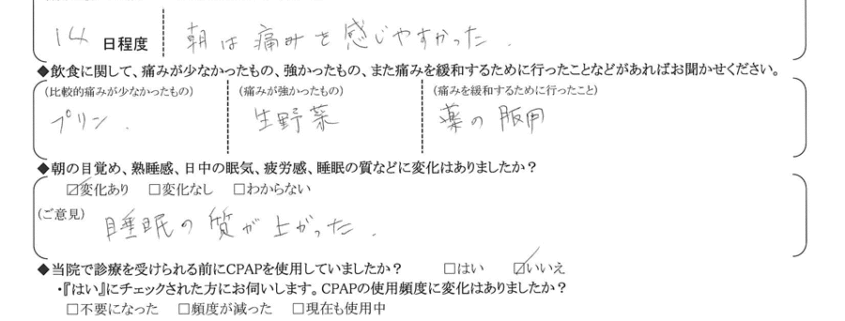 14 日程度 朝は痛みを感じやすかった.
◆飲食に関して、痛みが少なかったもの、強かったもの、また痛みを緩和するために行ったことなどがあればお聞かせください。
(比較的痛みが少なかったもの) (痛みが強かったもの) (痛みを緩和するために行ったこと)
プリン. 生野菜 薬の服用
◆朝の目覚め、熟睡感、日中の眠気、疲労感、睡眠の質などに変化はありましたか?
☑変化あり □変化なし □わからない
(ご意見) 睡眠の質が上がった.
◆当院で診療を受けられる前にCPAPを使用していましたか? □はい ☑いいえ
・『はい』にチェックされた方にお伺いします。CPAPの使用頻度に変化はありましたか?
□不要になった □頻度が減った □現在も使用中